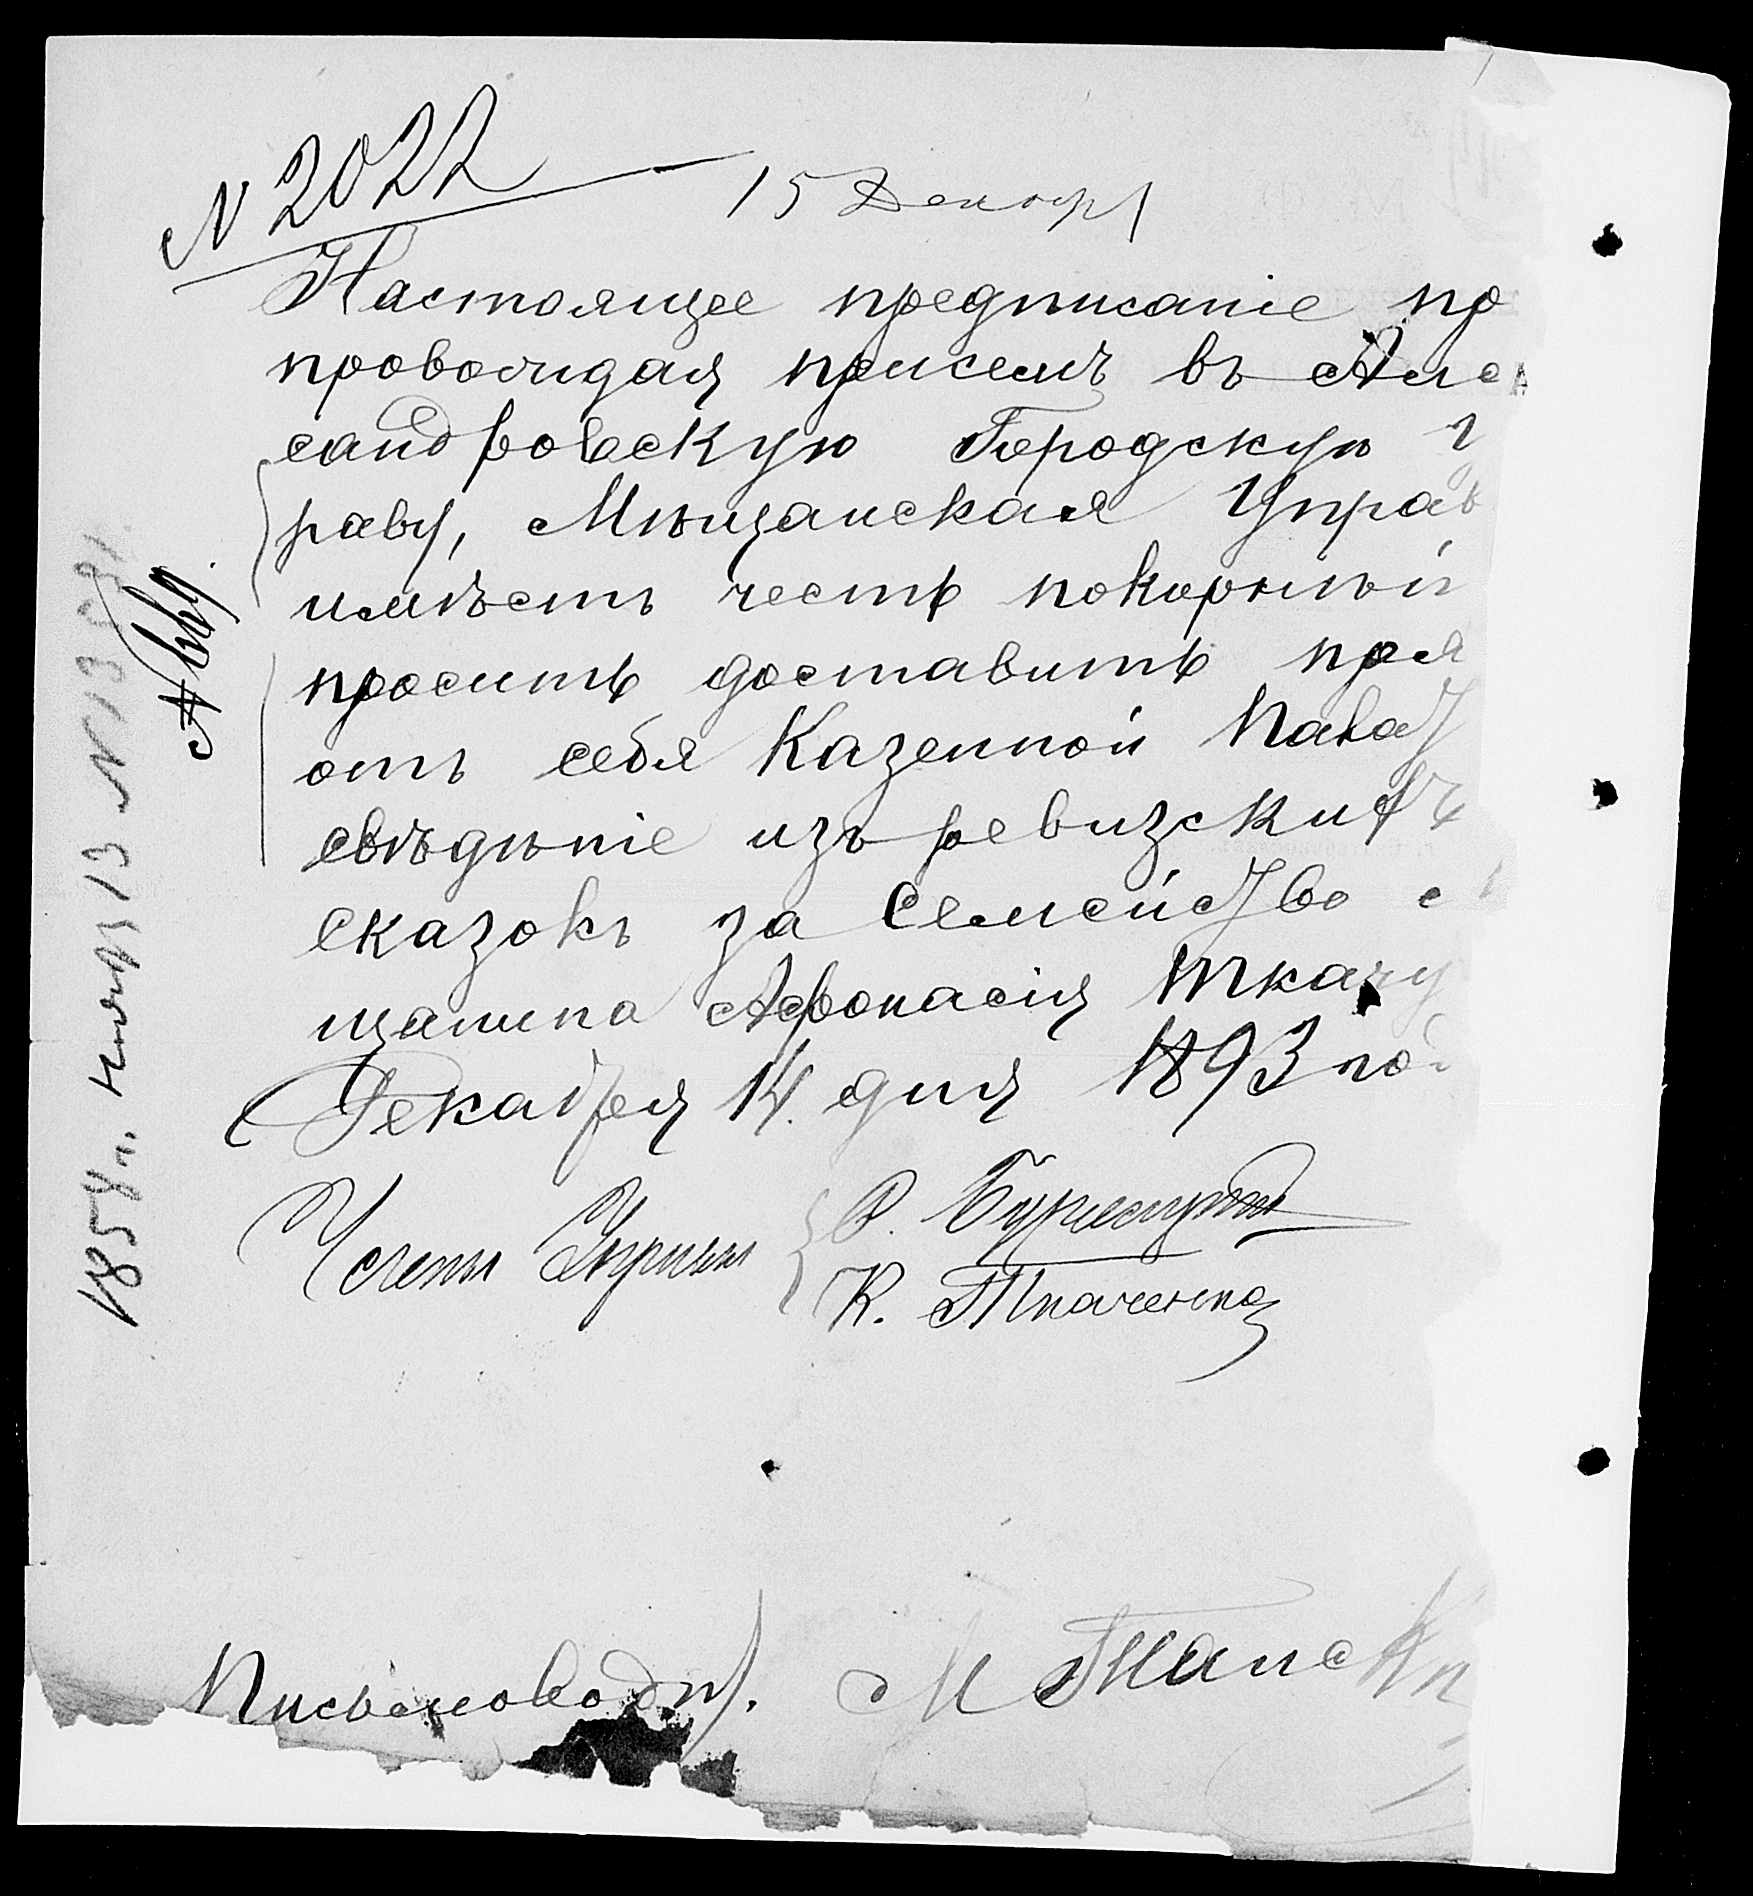 N 2022
15 Декабр
Настоящее предписаніе пр
провождая присемъ въ Алек
сандровскую Городскую У
раву, Мѣщанская Управ
имѣетъ честь покорнѣй
просить доставить прел
отъ себя Казенной Палат
свѣдѣніе изъ ревизскихъ
сказокъ за семейство
щанина Афонасія Ткачу
Декабря 14 дня 1893 го
Члены Управы
К. Ткаченко
Письмоводит.
1857 г.